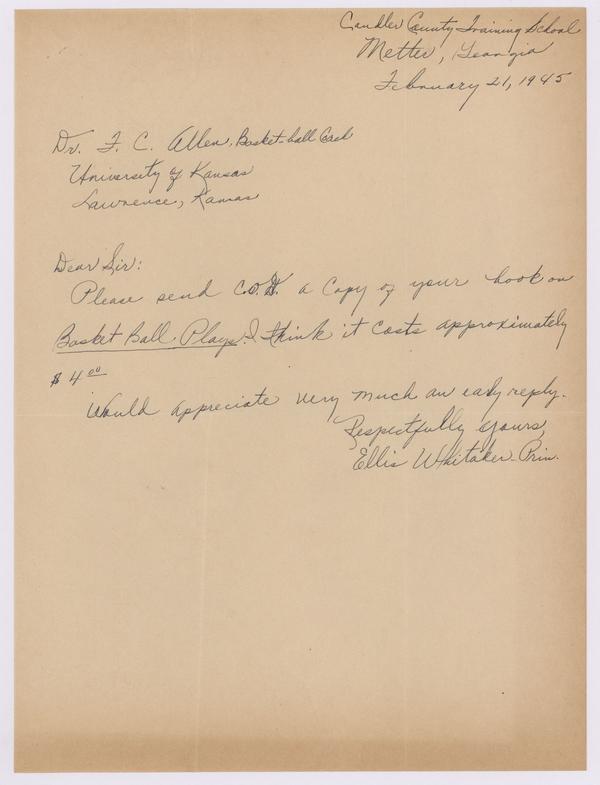 Candler County Training School
Metter, Georgia
February 21, 1945
Dr. F. C. Allen, Basket-ball Coach
University of Kansas
Lawrence, Kansas
Dear Sir:
Please send C.O.D. a Copy of your book on
Basket Ball Plays. I think it Costs approximately
$4.00
Would appreciate very much an early reply.
Respectfully yours,
Ellis Whitaker-Prin.